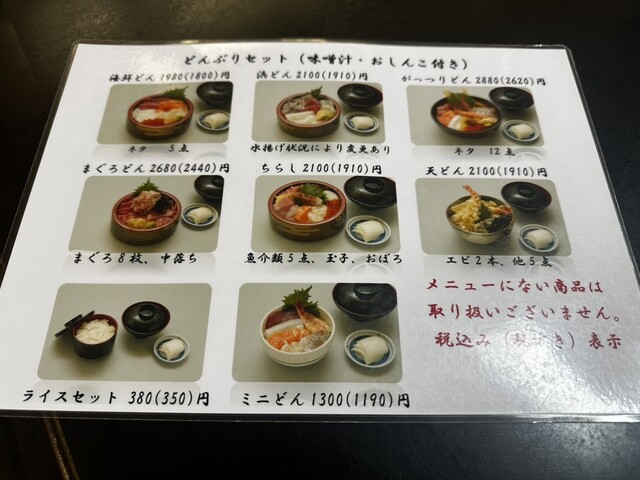 どんぶりセット（味噌汁・おしんこ付き）
海鮮どん 1980(1800)円
浜どん 2100(1910)円
がっつりどん 2880(2620)円
ネタ 5点
水揚げ状況により変更あり
ネタ 12点
まぐろどん 2680(2440)円
ちらし 2100(1910)円
天どん 2100(1910)円
まぐろ8枚、中落ち
魚介類5点、玉子、おぼろ
エビ2本、他5点
メニューにない商品は
取り扱いございません。
税込み（税抜き）表示
ライスセット 380(350)円
ミニどん 1300(1190)円